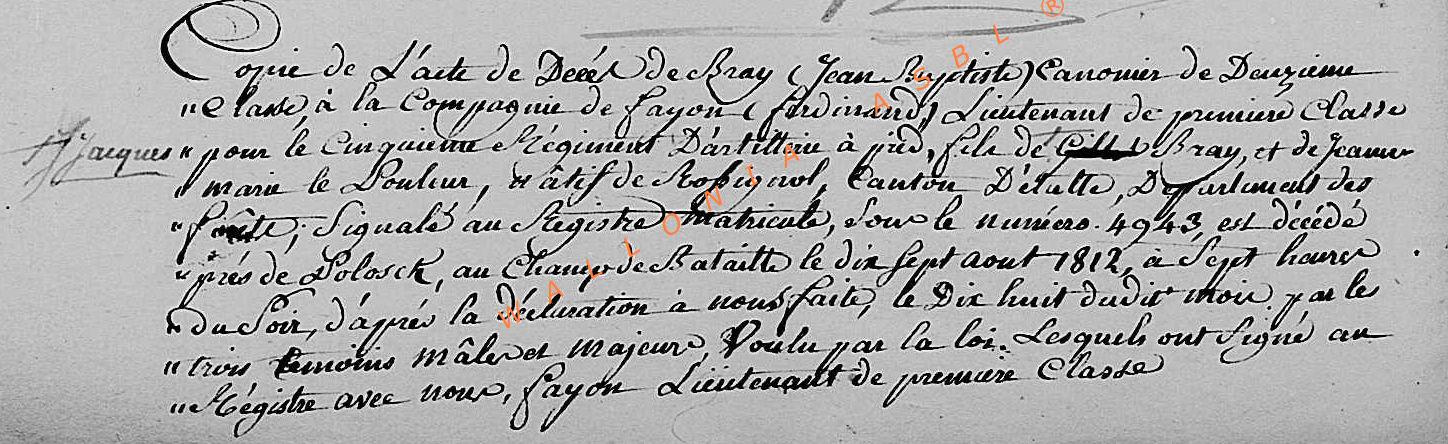 Copie de L'acte de Décès de Bray (Jean Baptiste) Canonier de Deuzieme
" Classe, à la Compagnie de fayon (ferdinand) Lieutenant de premiere Classe
Jacques " pour le Cinquieme Régiment D'artillerie à pied, fils de Bray, et de Jeanne
" marie le Pouleur, Natif de Rossignol, Canton D'étalle, Département des
" forêts, Signalé au Régistre matricule, Sous le numéro. 4943, est décédé
" près de Polosck, au Champ de Bataille le dix Sept aout 1812, à Sept heures
" du Soir, d'après la déclaration à nous faite, le Dix huit dudit mois, par les
" trois temoins mâles et majeurs, Voulu par la loi. Lesquels ont Signé au
" Régistre avec nous, fayon Lieutenant de premiere Classe
WALLONIA ASBL ®